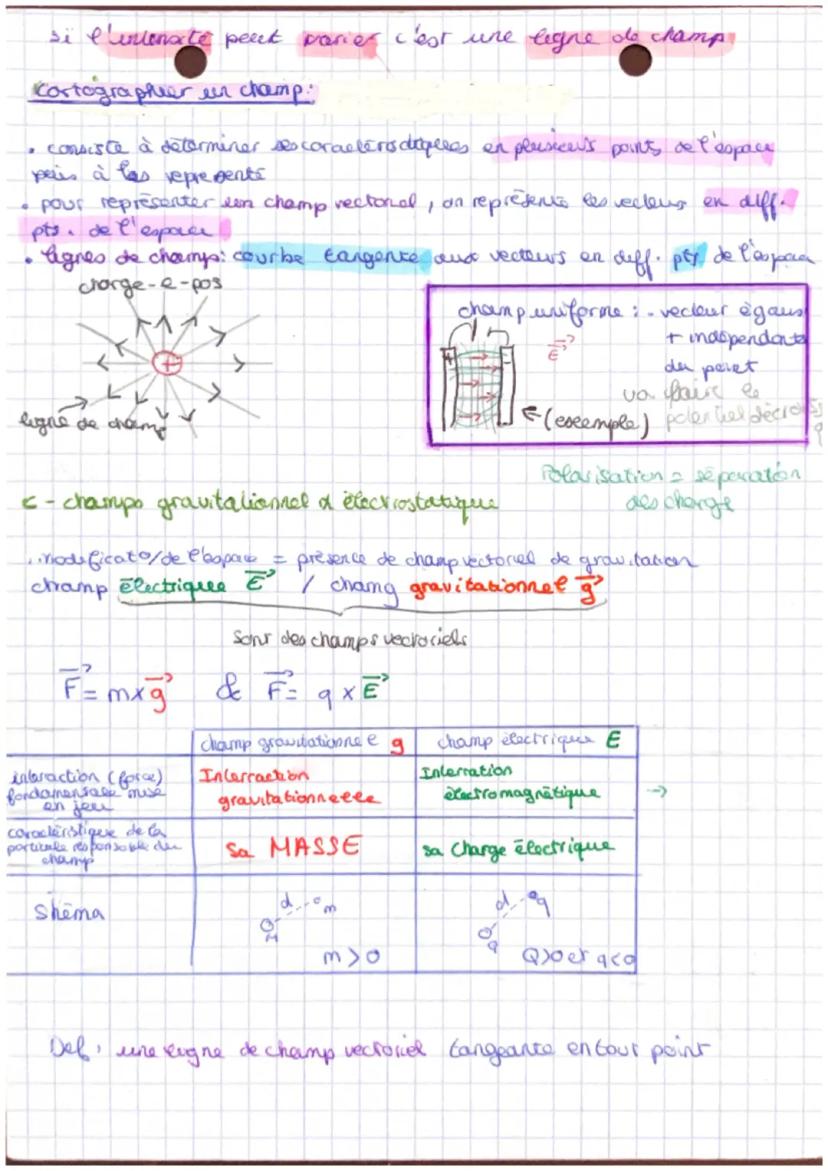 si l'intensité peut varier c'est une ligne de champ
Cartographier un champ:
• consiste à déterminer ses caractéristiques en plusieurs points de l'espace
puis à les représenté
• pour représenter un champ vectoriel, on représente les vecteurs en diff.
pts. de l'espace
• lignes de champs: courbe tangente aux vecteurs en diff. pts de l'espace
charge-e-pos
+
ligne de champ
champ uniforme : - vecteur égaux
+ indépendants
du point
va faire le
potentiel
+ -
E
←(exemple)
Polarisation = séparation
des charge
c - champs gravitationnel & électrostatique
modificat°/de l'espace = présence de champ vectoriel de gravitation
champ électrique E / champ gravitationnel g
sont des champs vectoriels
F = m x g & F = q x E
champ gravitationnel g champ électrique E
interaction (force)
fondamentale mise
en jeu
Interraction
gravitationnelle
Interration
électromagnétique →
caractéristique de la
particule responsable du
champ
sa MASSE
sa Charge électrique
shéma
d m
M
m>0
d q
q
Q>0 et q<0
Def: une ligne de champ vectoriel tangeante en tout point